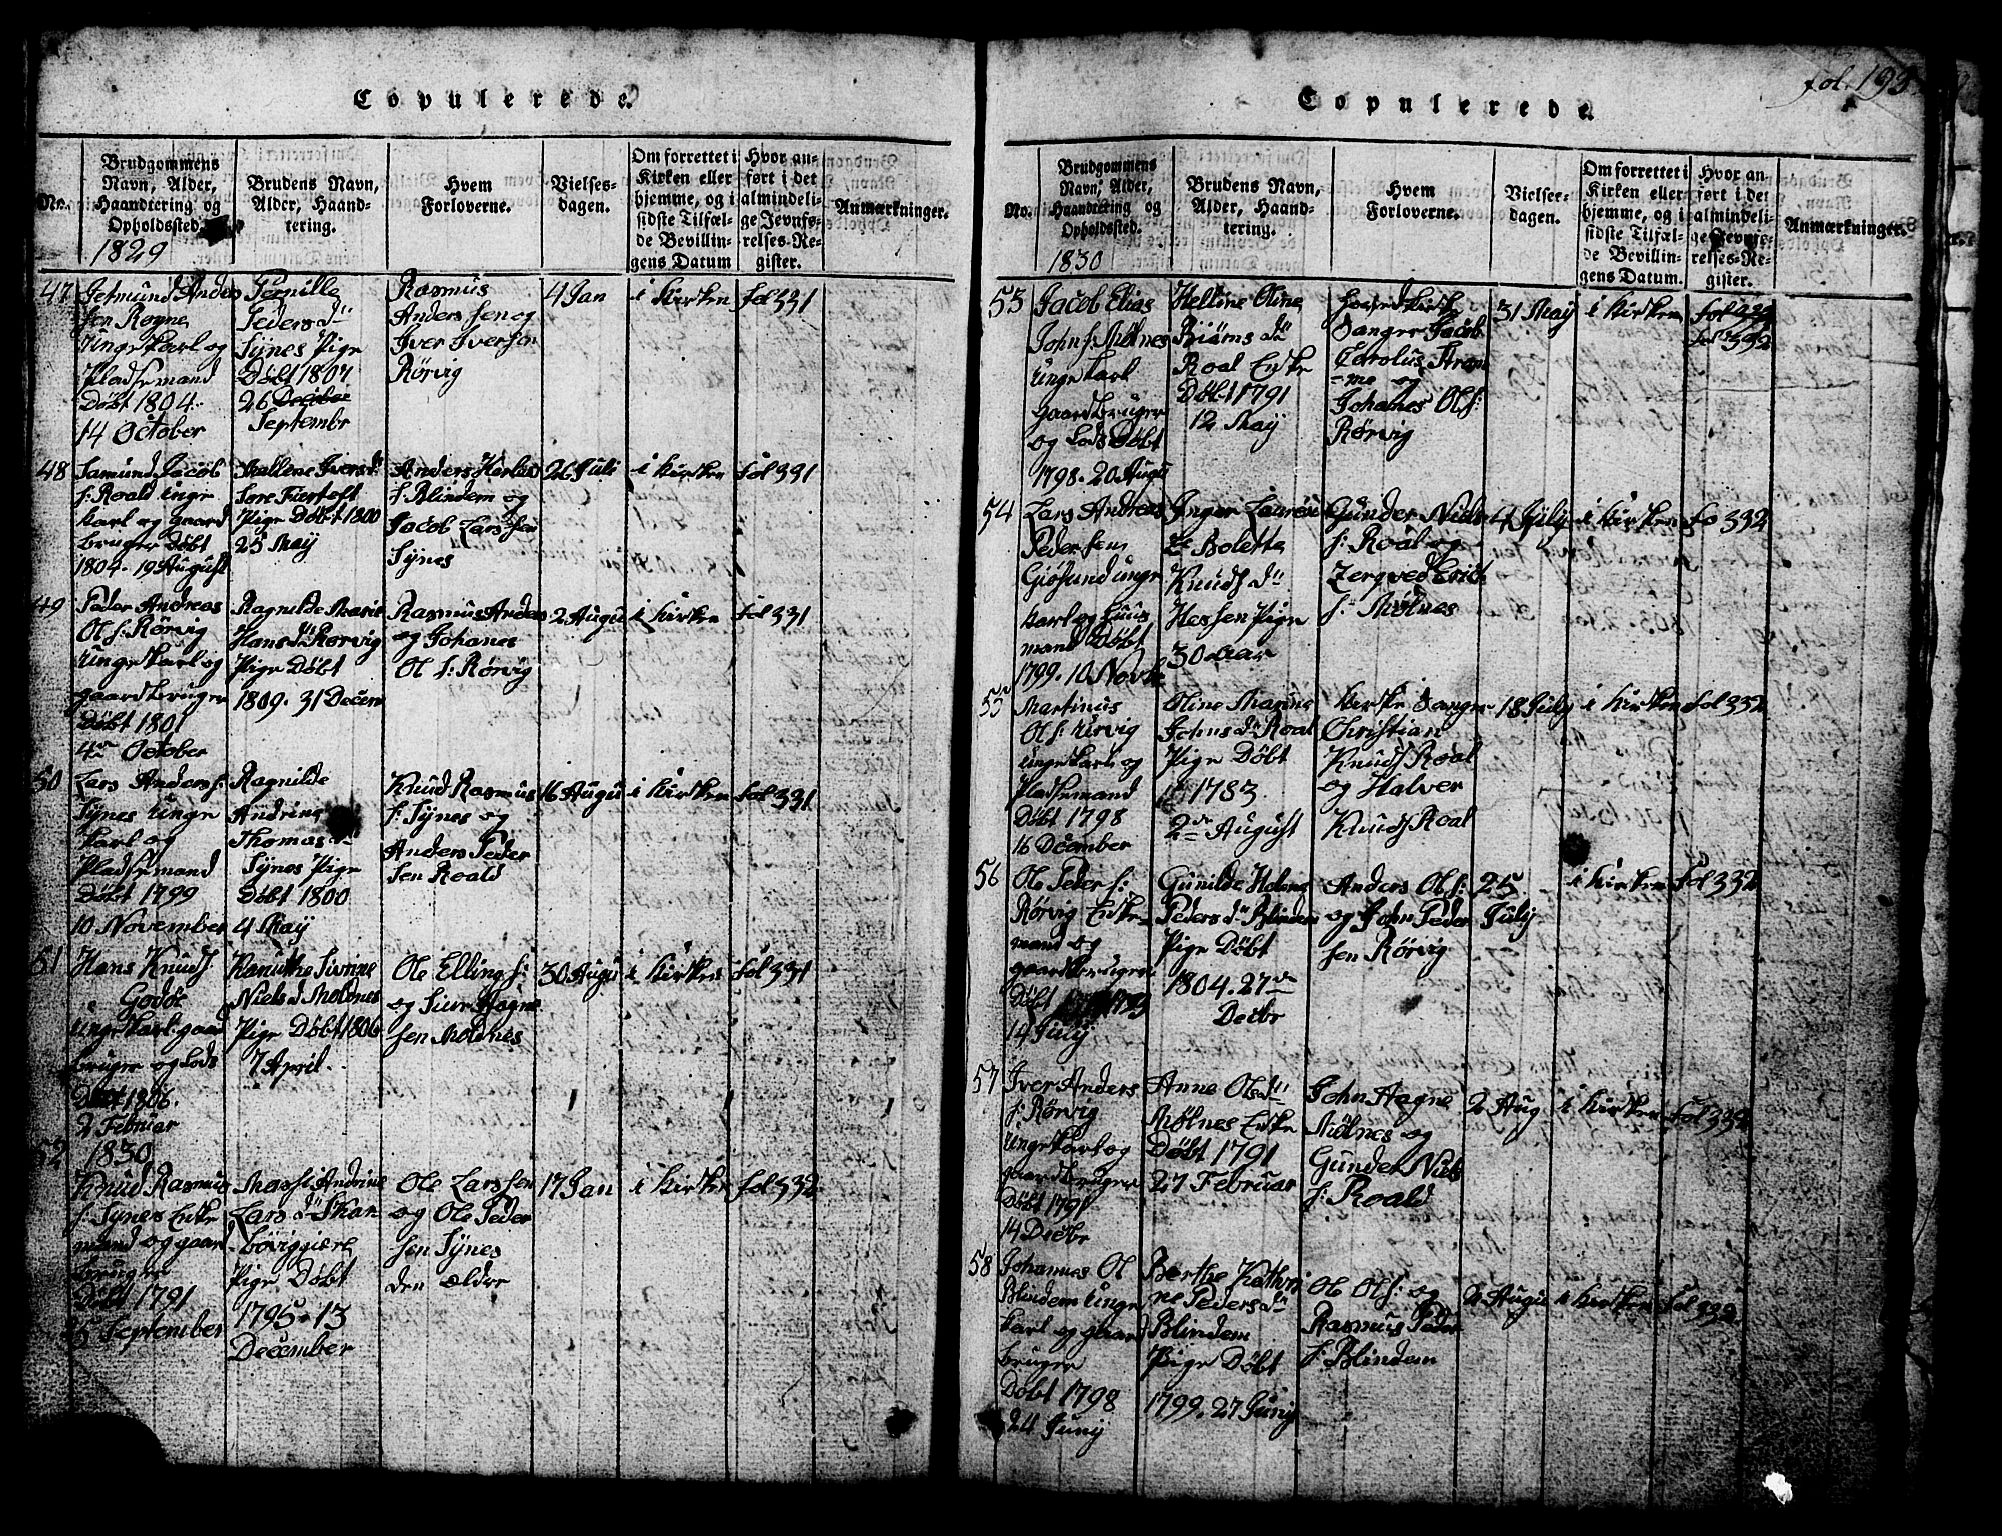 Copulerede.
No.
Brudgommens
Navn, Alder,
Haandtering og
Opholdssted.
1829
Brudens Navn,
Alder, Haand-
tering.
Hvem
Forloverne.
Vielses-
dagen.
Om forrettet i
Kirken eller
hjemme, og i
sidste Tilfæl-
de Bevillin-
gens Datum
Hvor an-
ført i det
almindeli-
ge Jevnfø-
relses-Re-
gister.
Anmærkninger.
47
Jetmund Anders
sen Rogne
Ungekarl og
Pladsemand
Døbt 1804
14 October
Pernille
Peders dʳ
Synes Pige
Døbt 1807
26
Septembr
Rasmus
Anders sen og
Iver Iversen
Rørvig
4 Jan
i Kirken
fol 331
48
Samund Jacob
s: Roald Unge
karl og gaard
bruger Døbt
1804 - 19 August
Mallene Iversdʳ
Pige Døbt 1800
25 May
Anders
s: Blindem og
Jacob Lars sen
Synes
26 Juli
i Kirken
fol 331
49
Peder Andreas
Ol s: Rørvig
Ungekarl og
gaardbruger
Døbt 1801
4de October
Ragnilde Marie
Hans dʳ Rørvig
Pige Døbt
1809. 31 Decem
Rasmus Anders
og Johanes
Ol s: Rørvig
2 Augu
i Kirken
fol 331
50
Lars Anders s:
Synes Unge
karl og
Pladsemand
Døbt 1799
10 November
Ragnilde
Andrine
Thomas dʳ
Synes Pige
Døbt 1800
4 May
Knud Rasmus
s: Synes og
Anders Peder
sen Roald
16 Augu
i Kirken
fol 331
51
Hans Knuds
Godøe
Ungekarl gaard
bruger og Lods
Døbt 1806.
2 Februar
Sivrine
Niels d Molnes
Pige Døbt 1806
7 April.
Ole Elling s:
og Siur Hagne
sen Molnes
30 Augu
i Kirken
fol 331
52
1830
Knud Rasmus
s: Synes Enke
mand og gaar
bruger
Døbt 1791
September
Massi Andrine
Lars dʳ Skar
Pige Døbt
1795 - 13
December
Ole Larssen
og Ole Peder
sen Synes
den ældre
17 Jan
i Kirken
fol 332
fol. 193
Copulerede.
No.
Brudgommens
Navn, Alder,
Haandtering og
Opholdssted.
1830
Brudens Navn,
Alder, Haand-
tering.
Hvem
Forloverne.
Vielses-
dagen.
Om forrettet i
Kirken eller
hjemme, og i
sidste Tilfæl-
de Bevillin-
gens Datum.
Hvor an-
ført i det
almindeli-
ge Jevnfø-
relses-Re-
gister.
Anmærkninger.
53
Jacob Elias
John s: Mölnes
Ungekarl
gaardbruger
og Lods Døbt
1798 - 20 Augu
Helline Oline
Biørns dʳ
Roal Enke
Døbt 1791
12 May
Sanger Jacob
Carolus Strøm
me og
Johanes Ol s:
Rørvig
31 May
i Kirken
fol 332
54
Lars Andreas
Peder sen
Giøsund unge
karl og huus
mand Døbt
1799. 10 Novbr
Inger
Bolette
Knuds dʳ
Hessen Pige
30 aar
Gunder Niels
s: Roal og
s: Mölnes
4 July
i Kirken
fo 332
55
Martinus
Ol s: Urvig
ungekarl og
Pladsemand
Døbt 1798
16 December
Oline Marine
Johns dʳ Roal
Pige Døbt
1783.
2de August
Kirke Sanger
Christian
Knuds Roal
og Halver
Knuds Roal
18 July
i Kirken
fol 332
56
Ole Peder s:
Rørvig Enke
mand og
gaardbruger
Døbt
14 July
Gunilde Helene
Peders dʳ Blindem
Pige Døbt
1804. 27de
Decbr
Anders Ol s:
og John Peder
sen Rørvig
25
July
i Kirken
fol 332
57
Iver Anders
s: Rørvig
Ungekarl og
gaardbruger
Døbt 1791
14 Decbr
Anne Ols dʳ
Mölnes Enke
Døbt 1791
27 Februar
John Hagne
Mölnes og
Gunder Niels
s: Roald
2 Aug
i Kirken
fol 332
58
Johannes Ol
Blindem Unge
karl og gaard
bruger
Døbt 1798
24 Juny
Berthe Kathri
ne Peders dʳ
Blindem
Pige Døbt
1799. 27 Juny
Ole Ol s: og
Rasmus Peder
s: Blindem
2 Augu
i Kirken
fol 332